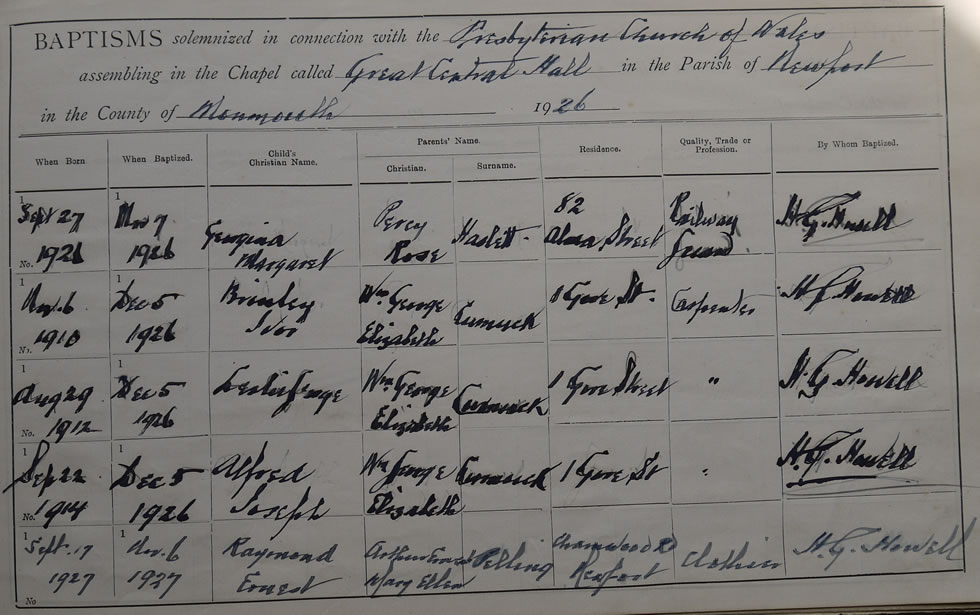 BAPTISMS solemnized in connection with the Presbyterian Church of Wales
assembling in the Chapel called Great Central Hall in the Parish of Newport
in the County of Monmouth 1926
When Born When Baptized. Child's Christian Name. Parents' Name. Christian. Surname. Residence. Quality, Trade or Profession. By Whom Baptized.
Sept 27 Nov 7 Percy 82 Railway H. G. Howell
1926 1926 Georgina Margaret Rose Haslett Alma Street Guard
No.
Nov. 6 Dec 5 Brinley Wm George 1 Gore St. Carpenter H G Howell
1910 1926 Ivor Elizabeth
No.
Aug 29 Dec 5 Leslie George Wm George 1 Gore Street " H. G. Howell
1912 1926 Elizabeth
No.
Sep 22 Dec 5 Alfred Wm George 1 Gore St " H. G. Howell
1914 1926 Joseph Elizabeth
No.
Sept. 17 Nov. 6 Raymond Arthur Ernest Pelling Charnwood Rd Clothier H. G. Howell
1927 1927 Ernest Mary Ellen Newport
No